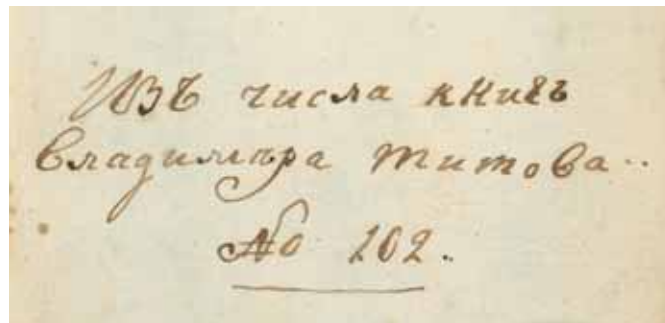 Изъ числа книгъ
Владимѣра Титова..
No 102.